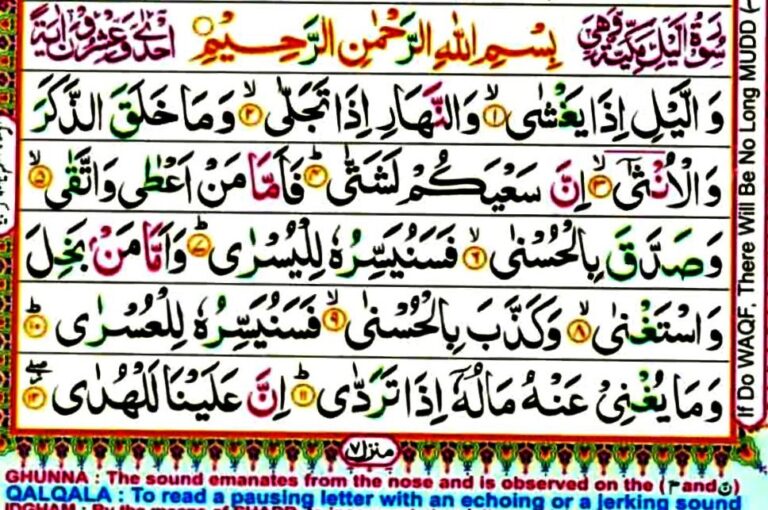 سُوْرَةُ الَّيْلِ مَكِّيَّةٌ وَّهِيَ بِسْمِ اللهِ الرَّحْمٰنِ الرَّحِيْمِ اِحْدٰى وَعِشْرُوْنَ اٰيَةً
وَالَّيْلِ اِذَا يَغْشٰى ۙ﴿۱﴾ وَالنَّهَارِ اِذَا تَجَلّٰى ۙ﴿۲﴾ وَمَا خَلَقَ الذَّكَرَ
وَالْاُنْثٰٓى ۙ﴿۳﴾ اِنَّ سَعْيَكُمْ لَشَتّٰى ؕ﴿۴﴾ فَاَمَّا مَنْ اَعْطٰى وَاتَّقٰى ۙ﴿۵﴾
وَصَدَّقَ بِالْحُسْنٰى ۙ﴿۶﴾ فَسَنُيَسِّرُهٗ لِلْيُسْرٰى ؕ﴿۷﴾ وَاَمَّا مَنْۢ بَخِلَ
وَاسْتَغْنٰى ۙ﴿۸﴾ وَكَذَّبَ بِالْحُسْنٰى ۙ﴿۹﴾ فَسَنُيَسِّرُهٗ لِلْعُسْرٰى ؕ﴿۱۰﴾
وَمَا يُغْنِيْ عَنْهُ مَالُهٗٓ اِذَا تَرَدّٰى ؕ﴿۱۱﴾ اِنَّ عَلَيْنَا لَلْهُدٰى ۖ﴿۱۲﴾
منزل ۷
If Do WAQF, There Will Be No Long MUDD (
GHUNNA : The sound emanates from the nose and is observed on the (م and ن)
QALQALA : To read a pausing letter with an echoing or a jerking sound